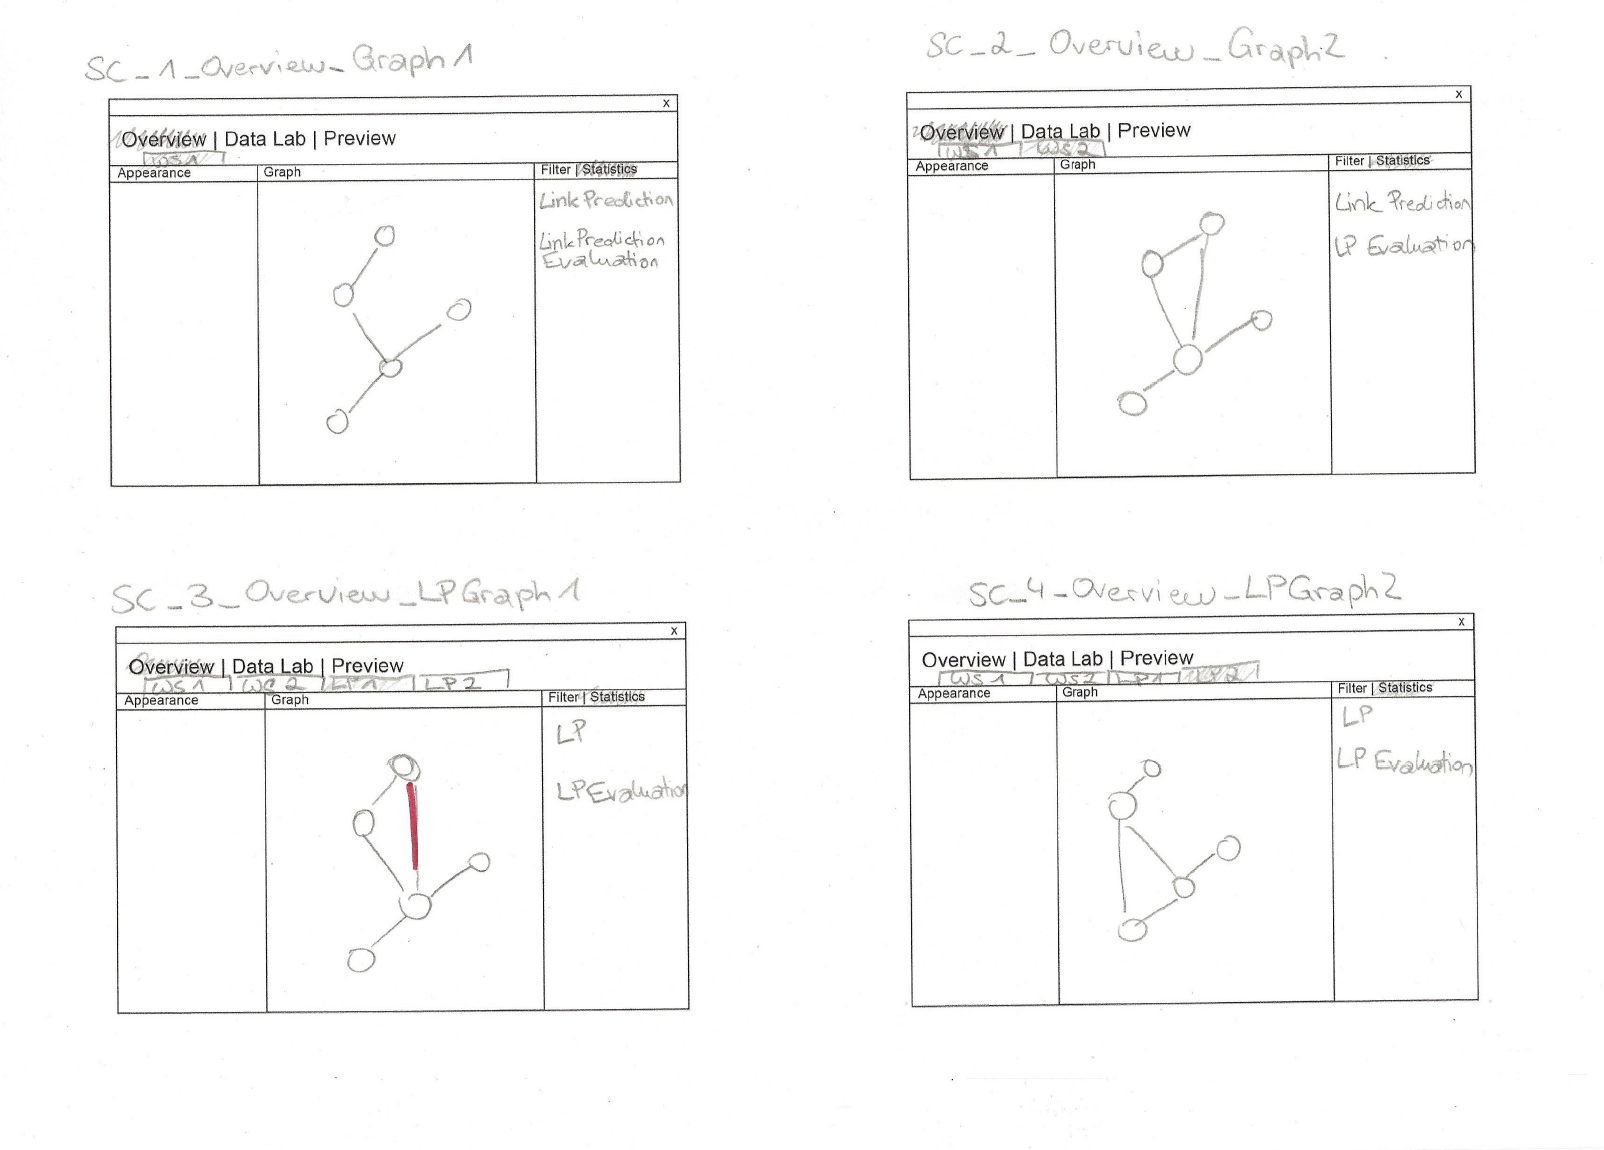 SC_1_Overview_Graph1
x
Overview | Data Lab | Preview
WS1
Appearance
Graph
Filter | Statistics
Link Prediction
Link Prediction
Evaluation
SC_2_Overview_Graph2
x
Overview | Data Lab | Preview
WS1 WS2
Appearance
Graph
Filter | Statistics
Link Prediction
LP Evaluation
SC_3_Overview_LPGraph1
x
Overview | Data Lab | Preview
WS1 WS2 LP1 LP2
Appearance
Graph
Filter | Statistics
LP
LP Evaluation
SC_4_Overview_LPGraph2
x
Overview | Data Lab | Preview
WS1 WS2 LP1 LP2
Appearance
Graph
Filter | Statistics
LP
LP Evaluation